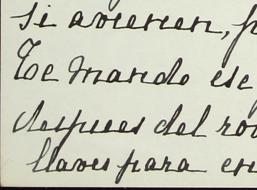 si avienen, p
Te mando ese
despues del ro
llaves para en